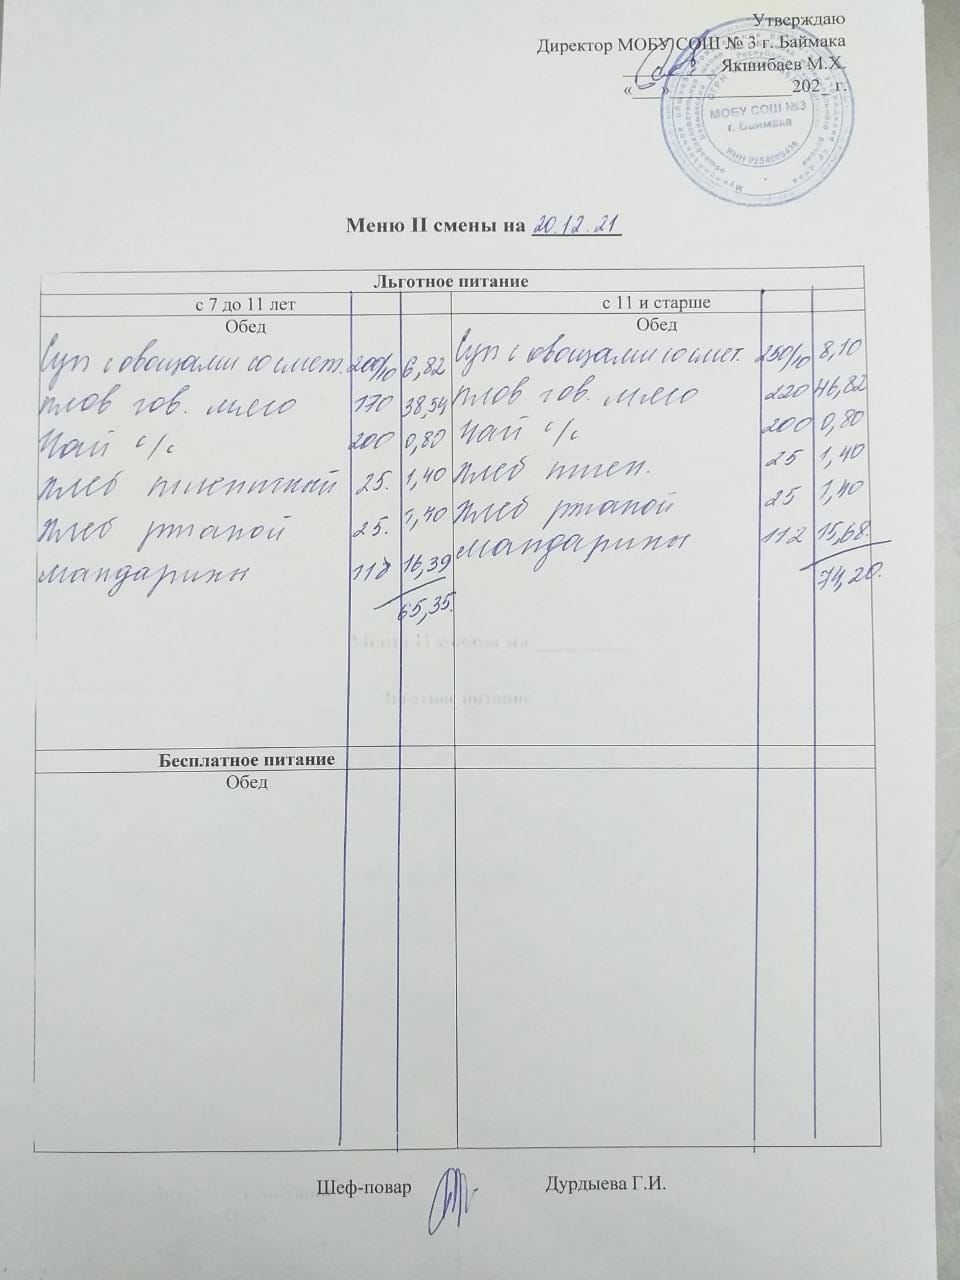 Утверждаю
Директор МОБУ СОШ № 3 г. Баймака
Якшибаев М.Х.
«___»______________202_ г.
МОБУ СОШ №3
г. Баймака
Меню II смены на 20.12.21
Льготное питание
с 7 до 11 лет
с 11 и старше
Обед
Обед
Суп с овощами со смет. 200/10 6,82
Суп с овощами со смет. 250/10 8,10
Плов гов. мясо 170 38,54
Плов гов. мясо 220 46,82
Чай с/с 200 0,80
Чай с/с 200 0,80
Хлеб пшеничный 25. 1,40
Хлеб пшен. 25 1,40
Хлеб ржаной 25. 1,40
Хлеб ржаной 25 1,40
мандарины 16,39
мандарины 112 15,68
65,35.
74,20.
Бесплатное питание
Обед
Шеф-повар Дурдыева Г.И.